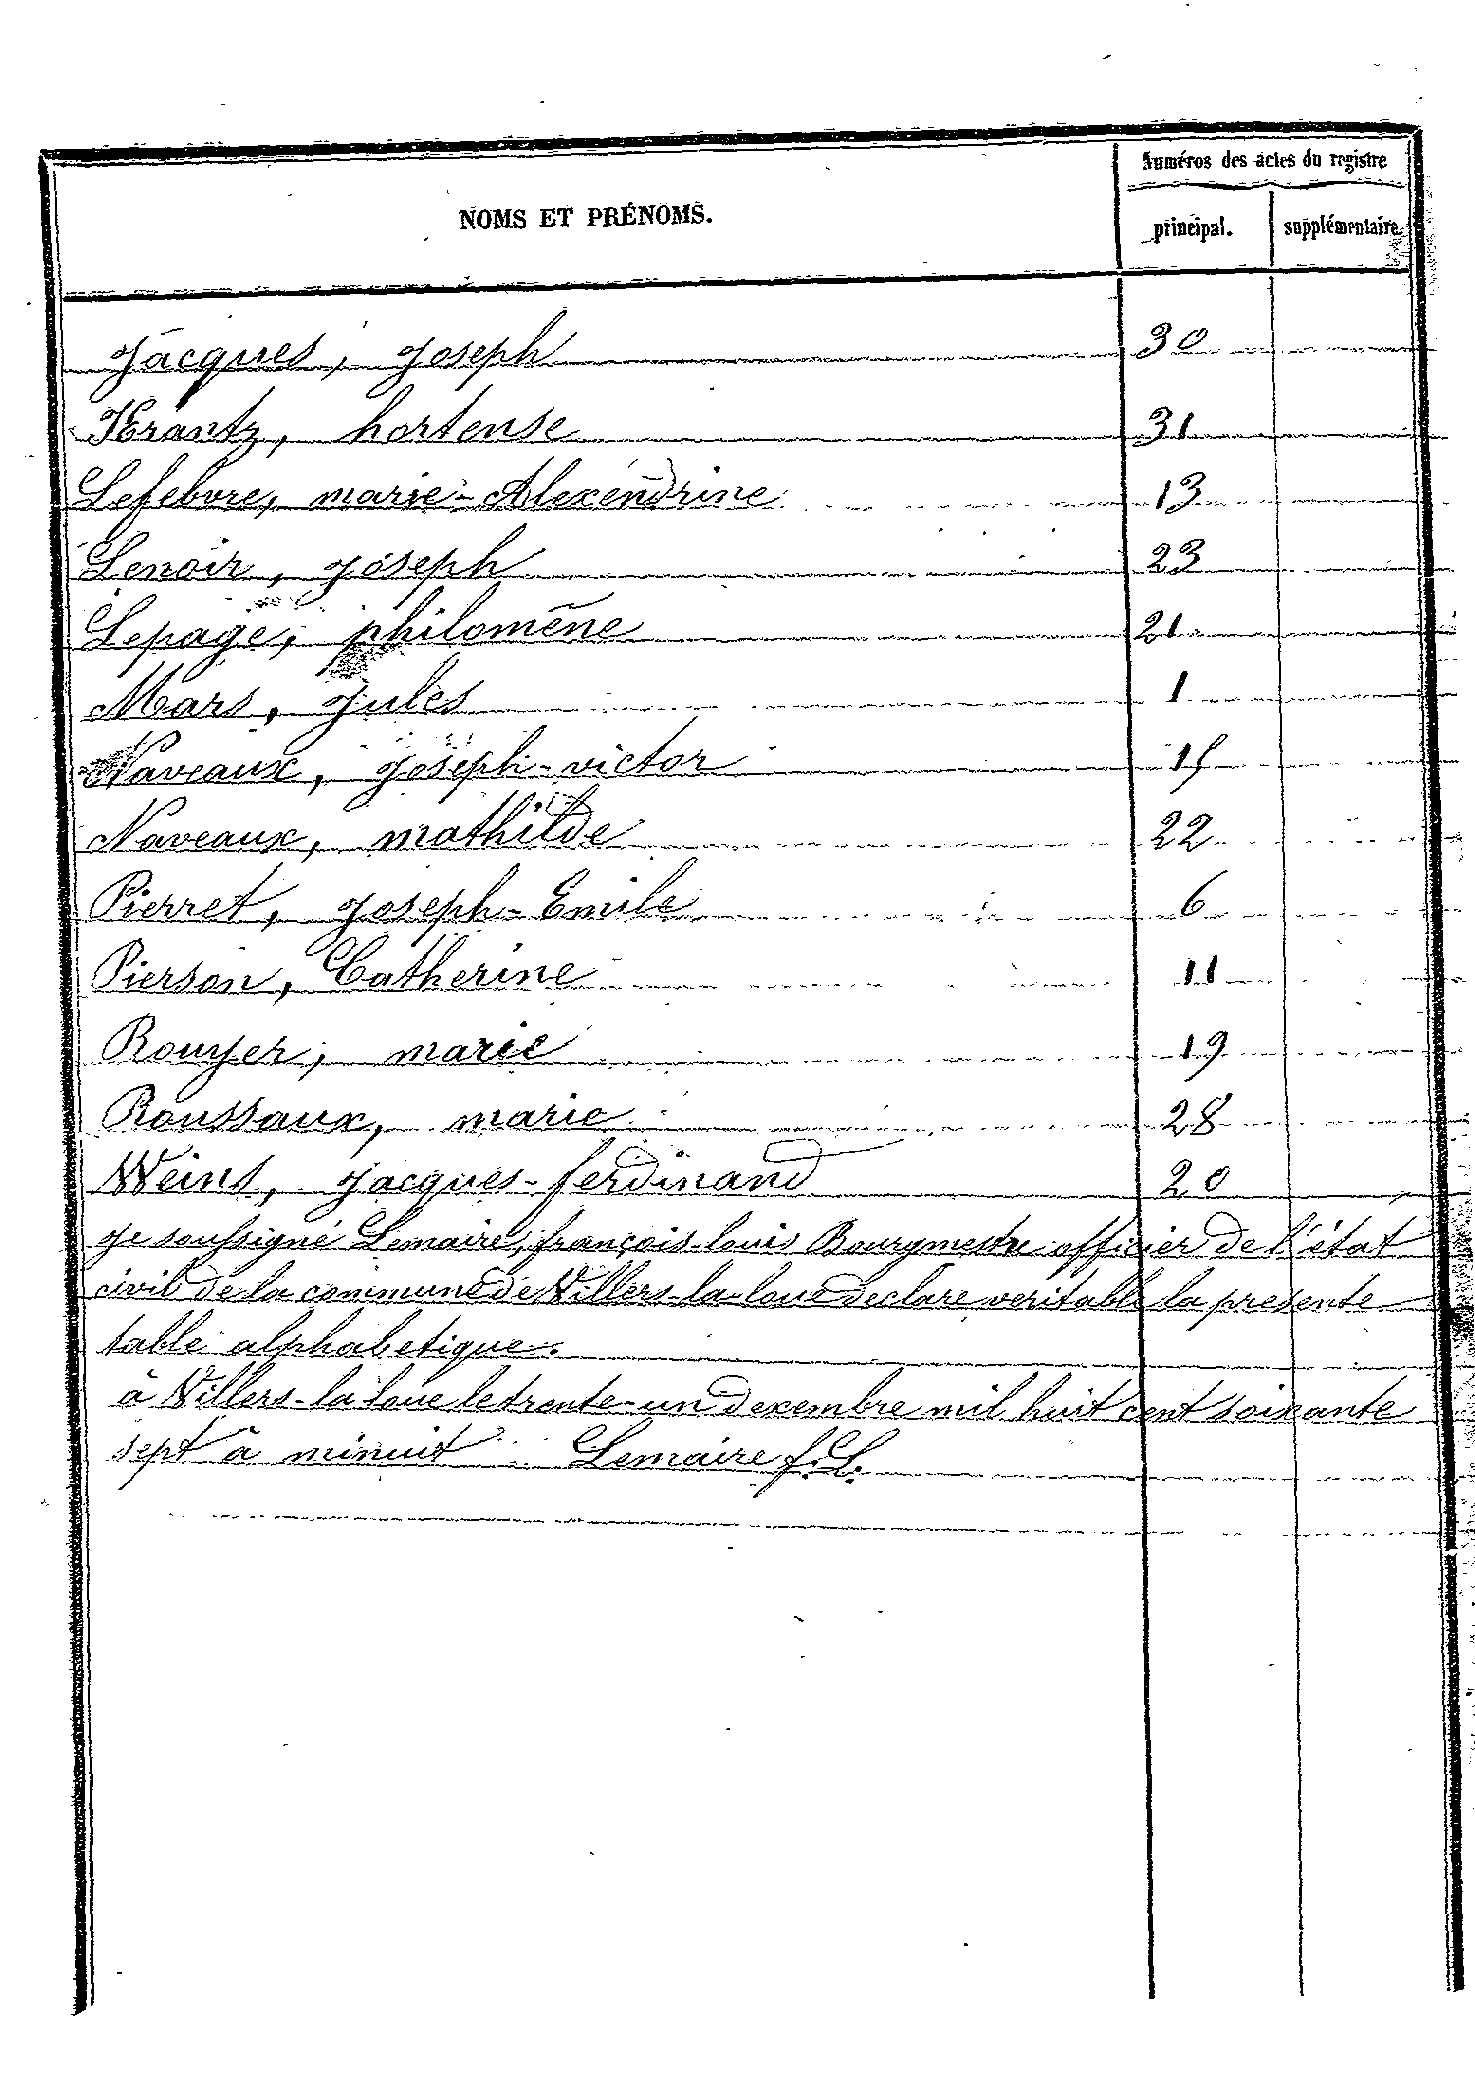 Numéros des actes du registre
NOMS ET PRÉNOMS.
principal. supplémentaire.
Jacques, Joseph 30
Krantz, hortense 31
Lefebvre, marie-Alexendrine 13
Lenoir, Joseph 23
Lepage, philomène 21
Mars, Jules 1
Naveaux, Joseph-victor 15
Naveaux, mathilde 22
Pierret, Joseph-Emile 6
Pierson, Catherine 11
Rouyer, marie 19
Roussaux, marie 28
Weins, Jacques-ferdinand 20
Je soussigné Lemaire, françois-louis Bourgmestre officier de l'état
civil de la commune de Villers-la-loue declare veritable la presente
table alphabetique.
à Villers-la-loue le trente-un decembre mil huit cent soixante
sept à minuit Lemaire f. L.